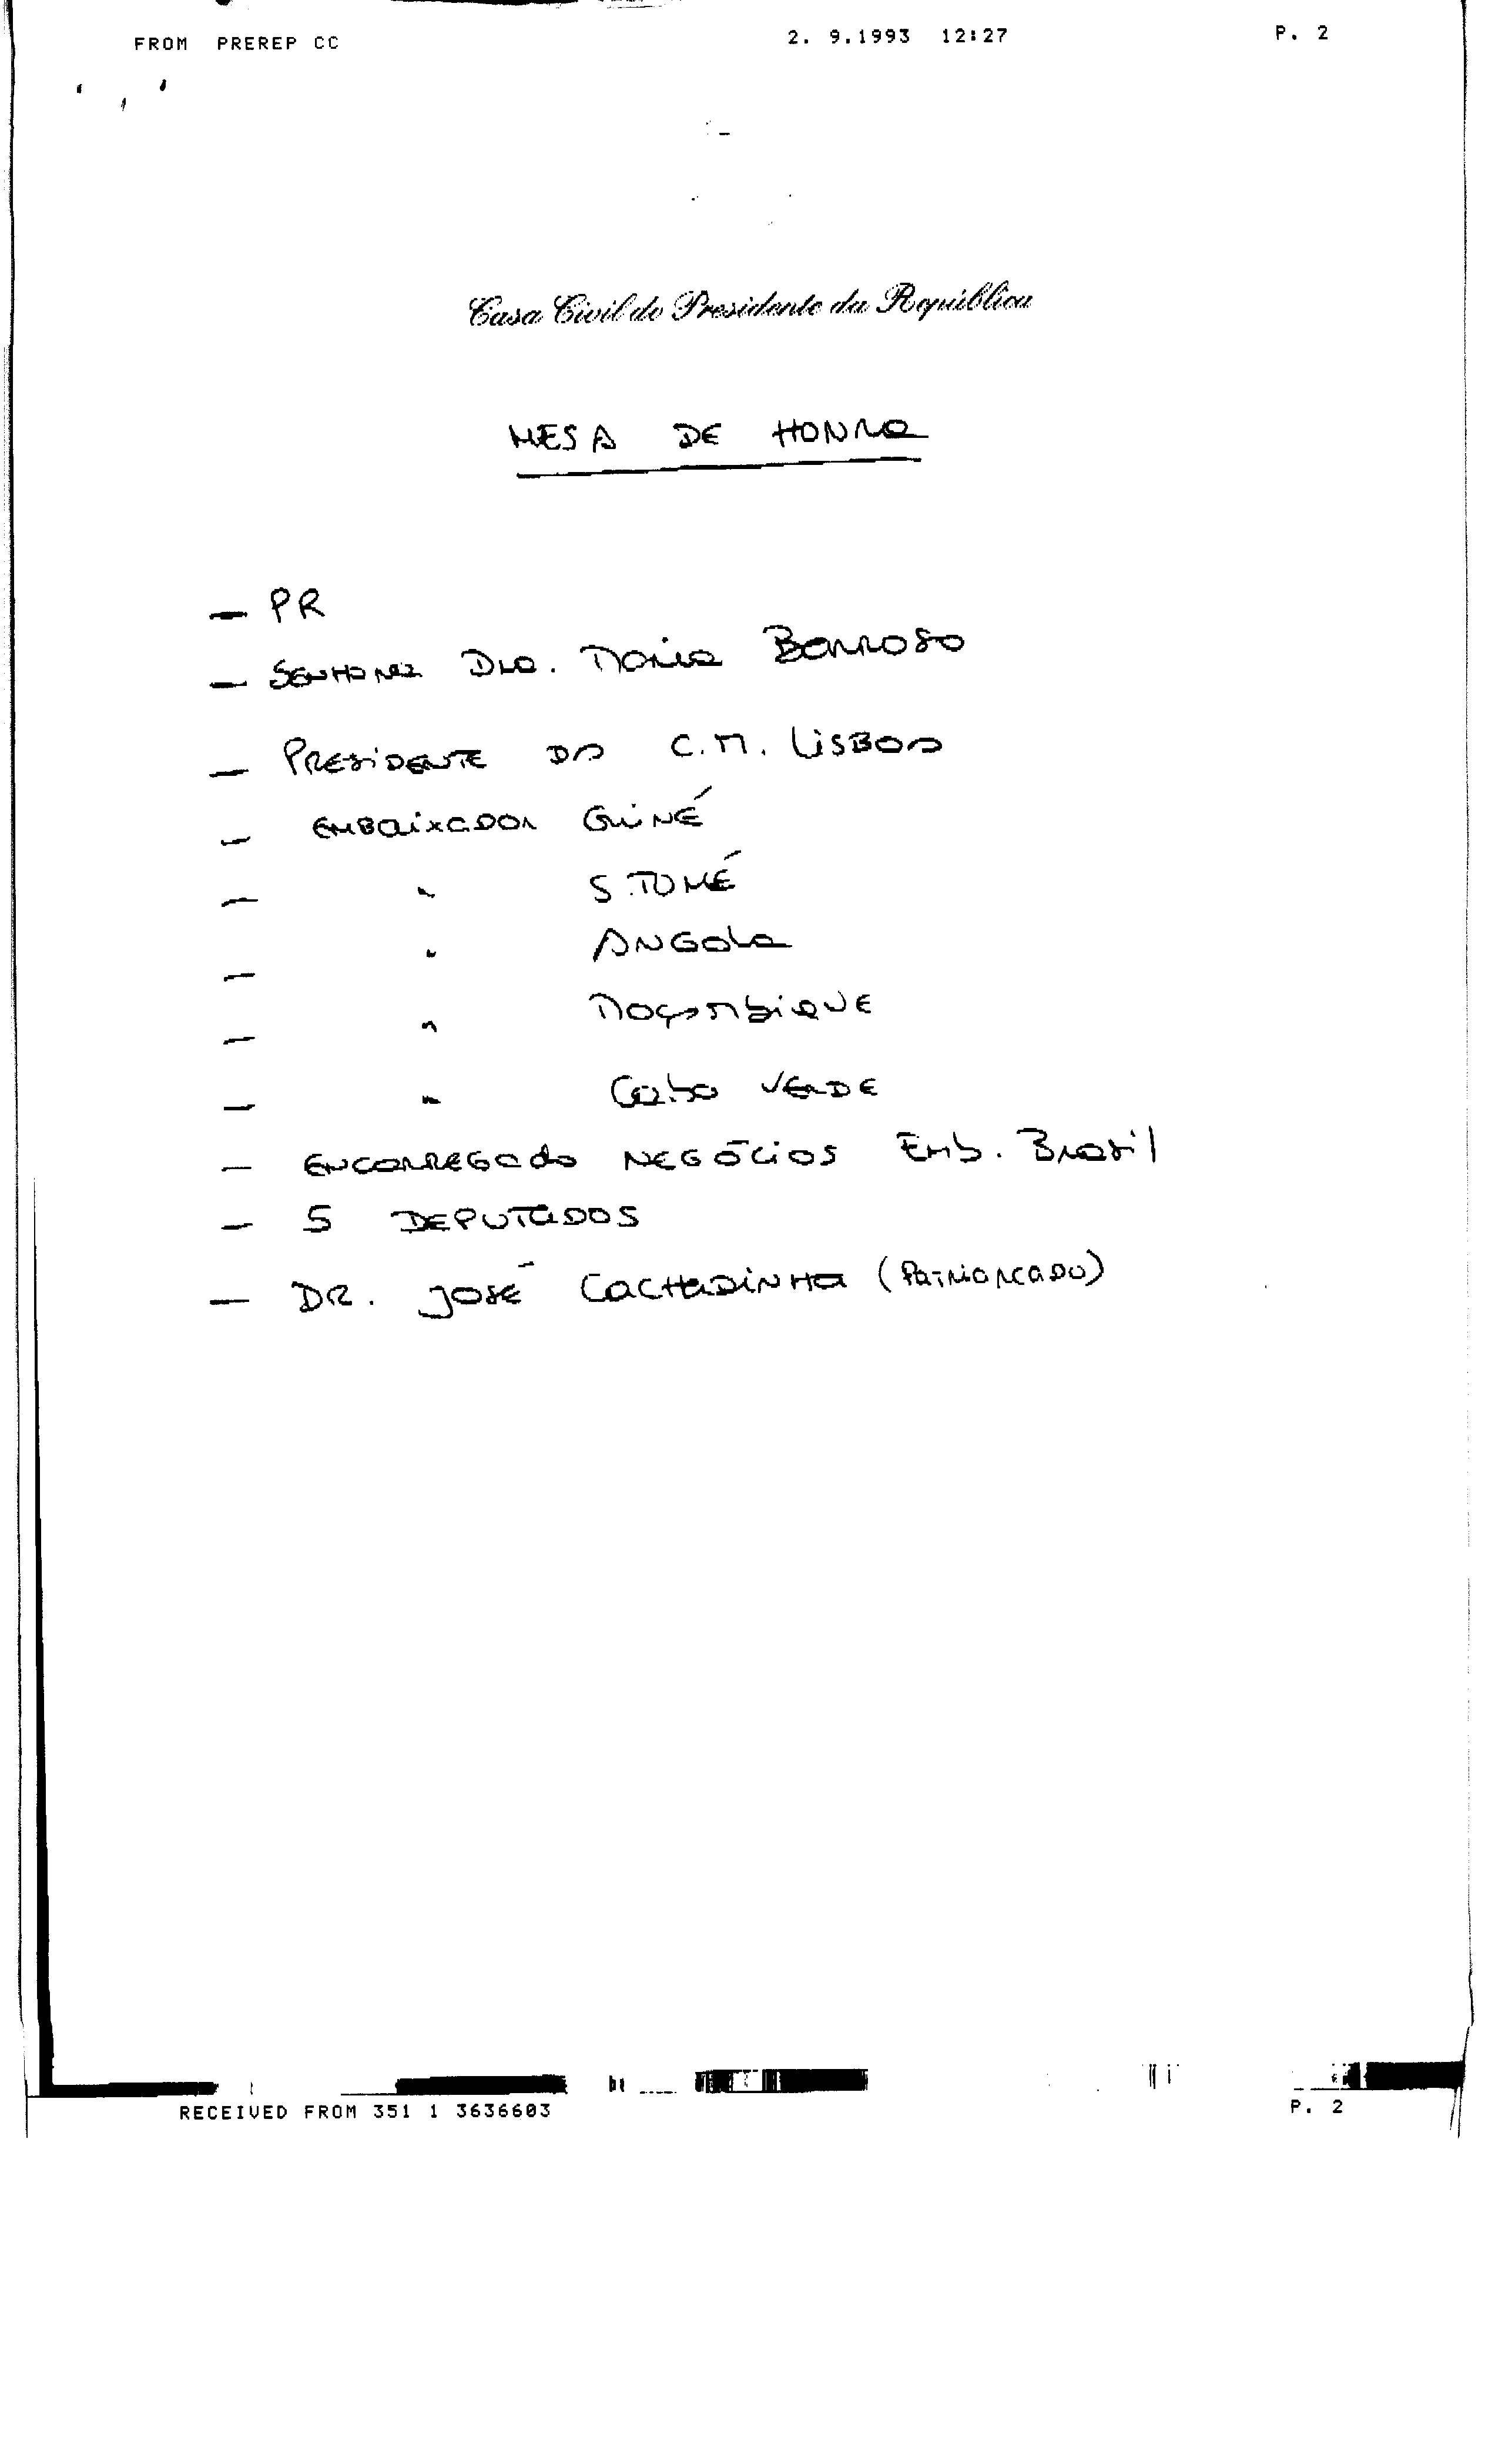 FROM PREREP CC 2. 9.1993 12:27 P. 2
Casa Civil do Presidente da República
MESA DE HONRA
— PR
— SENHORA DRA. MARIA BARROSO
— PRESIDENTE DA C.M. LISBOA
— EMBAIXADOR GUINÉ
— " S.TOMÉ
— " ANGOLA
— " MOÇAMBIQUE
— " CABO VERDE
— ENCARREGADO NEGÓCIOS EMB. BRASIL
— 5 DEPUTADOS
— DR. JOSÉ CACHADINHA (PATRIARCADO)
RECEIVED FROM 351 1 3636603 P. 2